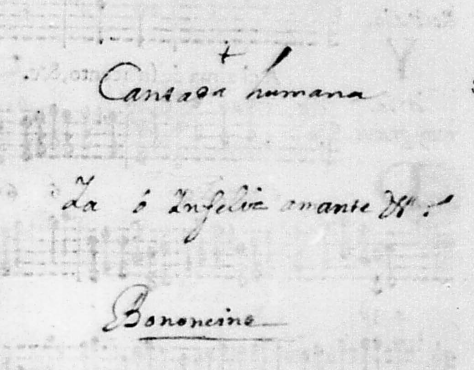 +
Cantada humana
Ya ó Infeliz amante &ª
Bononcino